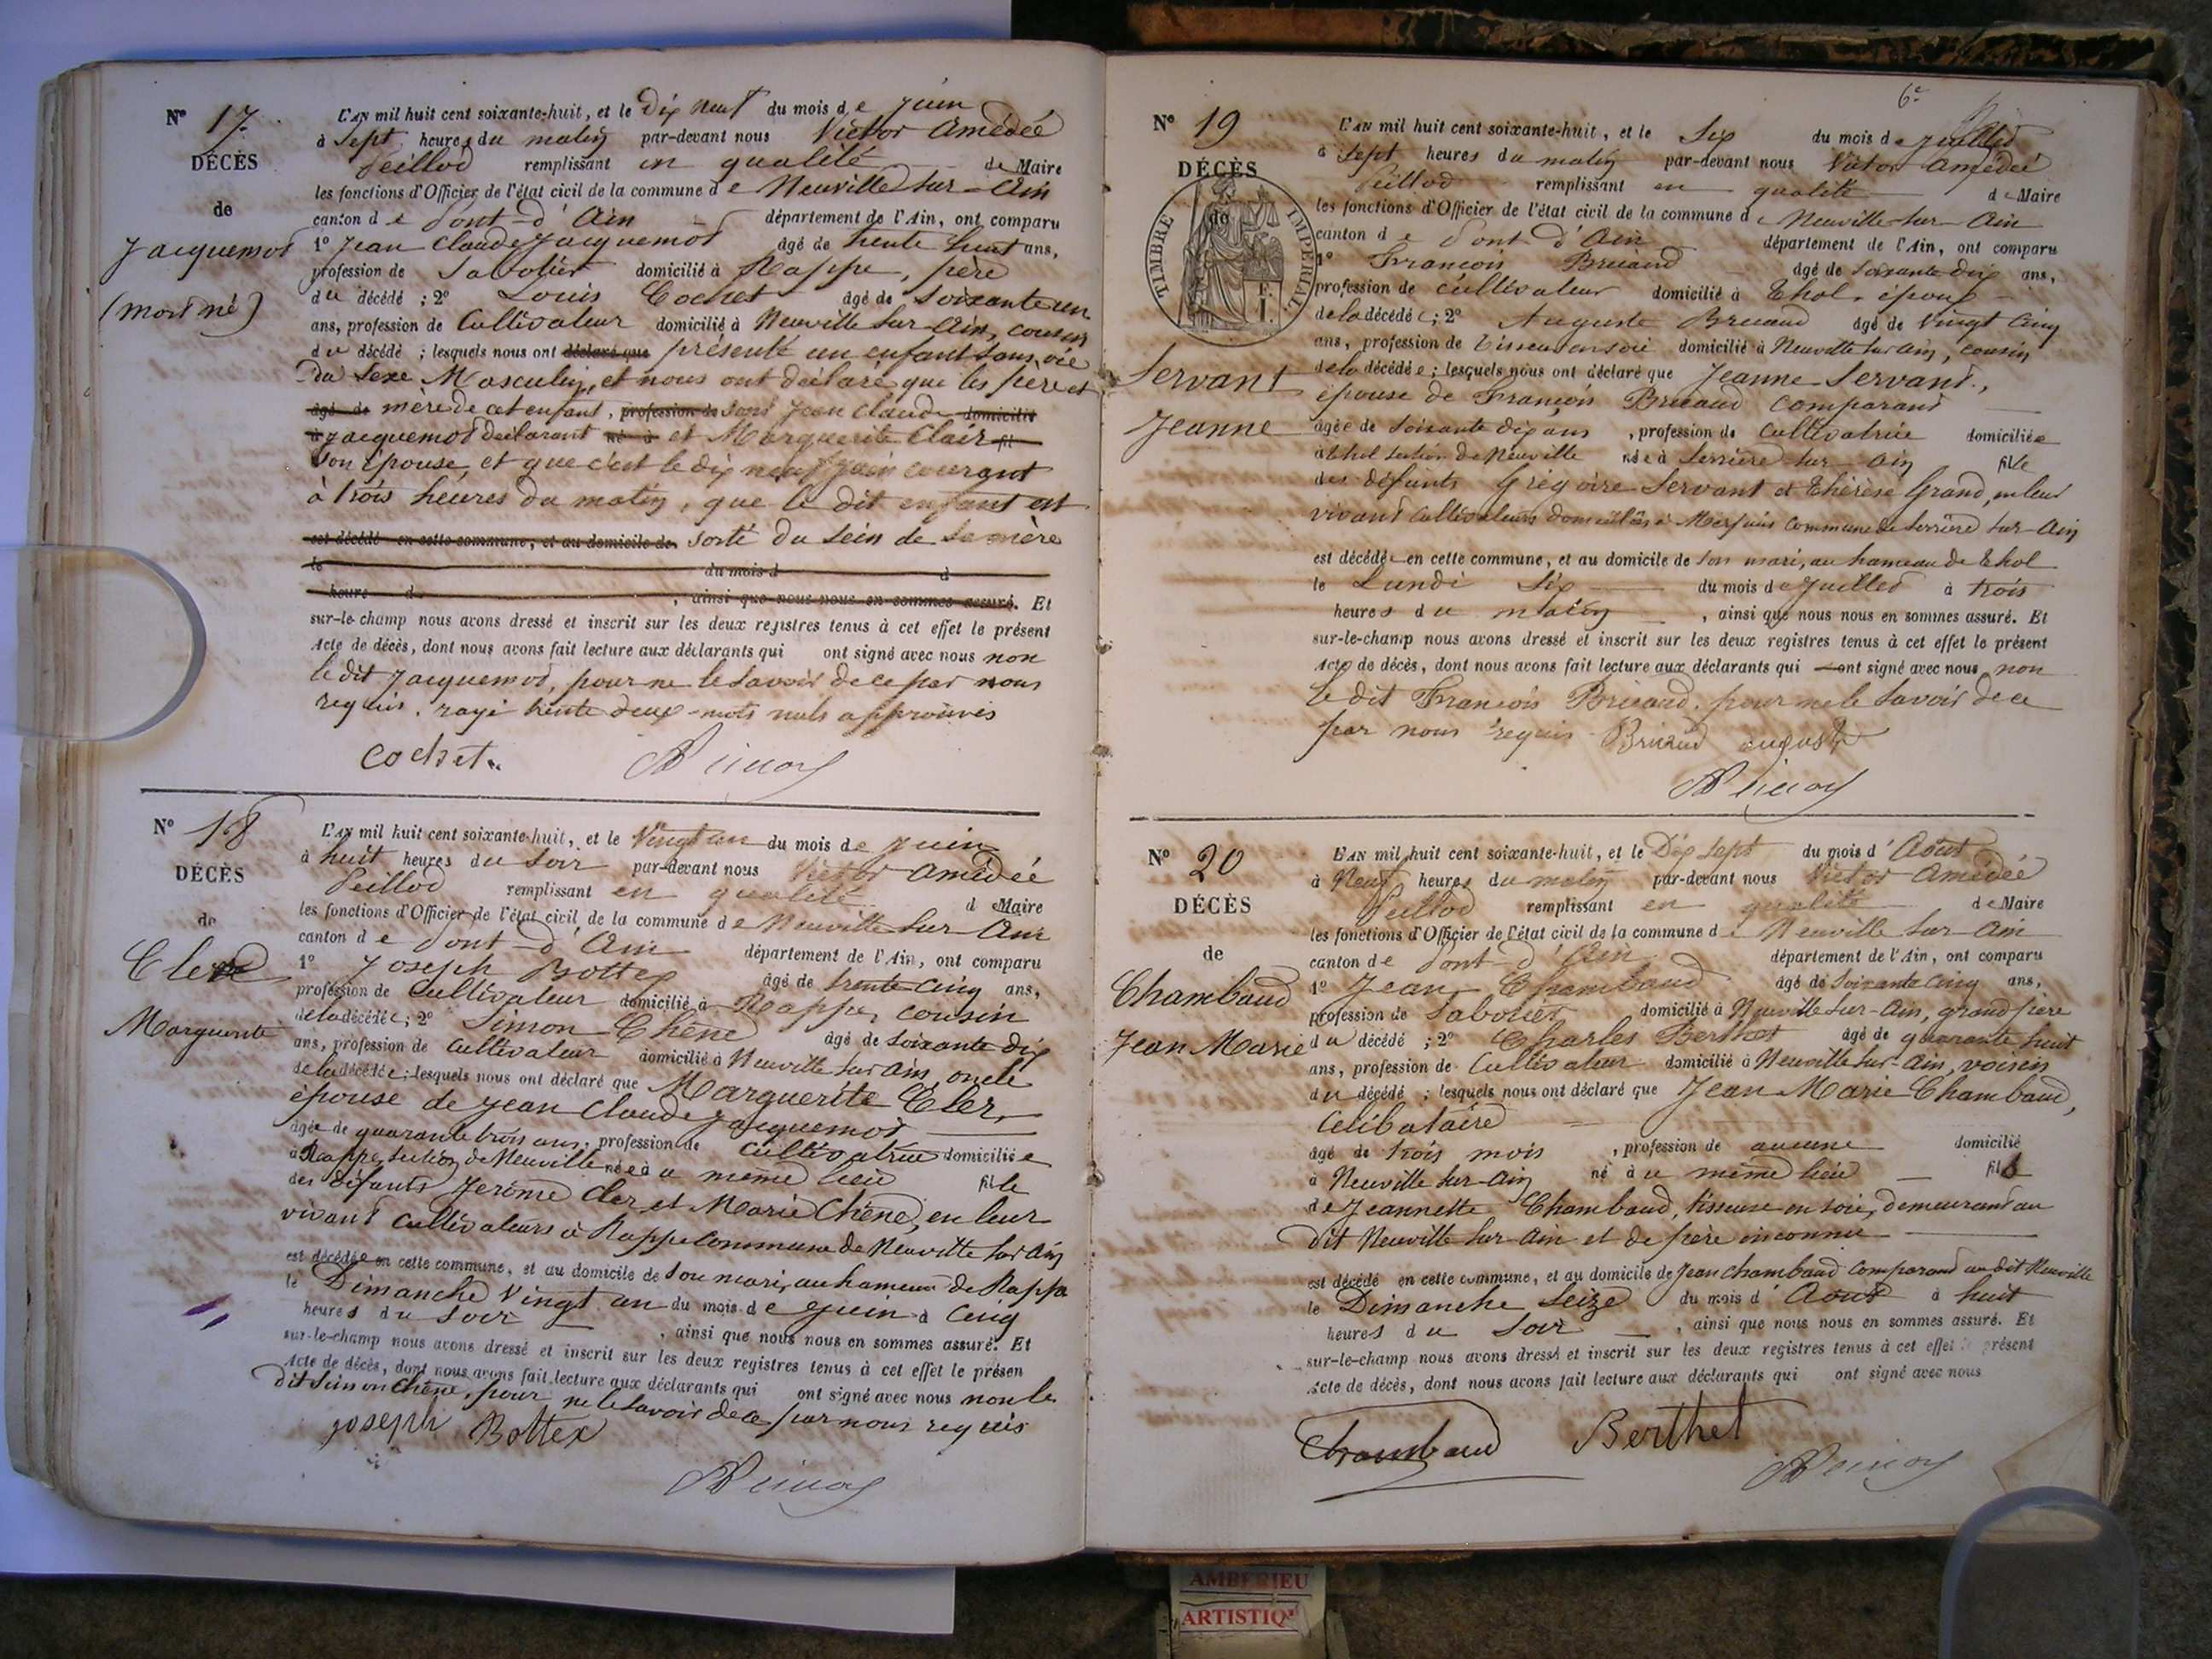 N° 17
DÉCÈS
de
Jacquemot
(mort né)
L'AN mil huit cent soixante-huit, et le Dix neuf du mois de juin
à Sept heures du matin par-devant nous Victor Amédée
Peillod remplissant en qualité de Maire
les fonctions d'Officier de l'état civil de la commune de Neuville sur-Ain
canton de Pont-d'Ain département de l'Ain, ont comparu
1° Jean Claude Jacquemot âgé de trente huit ans,
profession de Sabotier domicilié à Rappe, père
du décédé ; 2° Louis Cochet âgé de soixante un
ans, profession de Cultivateur domicilié à Neuville sur-Ain, cousin
du décédé ; lesquels nous ont déclaré que présenté un enfant sans vie
Du Sexe Masculin, et nous ont déclaré que les père et
âgé de mère de cet enfant, profession de sont Jean Claude domicilié
à Jacquemot déclarant né à et Marguerite Clair fil
son épouse, et que c'est le dix neuf juin courant
à trois heures du matin, que le dit enfant est
est décédé en cette commune, et au domicile de sorti du sein de sa mère
le du mois d d
heure d , ainsi que nous nous en sommes assuré. Et
sur-le-champ nous avons dressé et inscrit sur les deux registres tenus à cet effet le présent
Acte de décès, dont nous avons fait lecture aux déclarants qui ont signé avec nous non
le dit Jacquemot, pour ne le savoir de ce par nous
requis. rayé trente deux mots nuls approuvés
Cochet
N° 18
DÉCÈS
de
Cler
Marguerite
L'AN mil huit cent soixante-huit, et le Vingt un du mois de juin
à huit heures du soir par-devant nous Victor Amédée
Peillod remplissant en qualité de Maire
les fonctions d'Officier de l'état civil de la commune de Neuville sur-Ain
canton de Pont-d'Ain département de l'Ain, ont comparu
1° Joseph Bottex âgé de trente cinq ans,
profession de Cultivateur domicilié à Rappe, cousin
de la décédée ; 2° Simon Chêne âgé de soixante dix
ans, profession de Cultivateur domicilié à Neuville sur Ain, oncle
de la décédée ; lesquels nous ont déclaré que Marguerite Cler,
épouse de Jean Claude Jacquemot
âgée de quarante trois ans, profession de Cultivatrice domiciliée
à Rappe, section de Neuville née à u même lieu fille
des défunts Jérôme Cler et Marie Chêne, en leur
vivant cultivateurs à Rappe commune de Neuville sur Ain
est décédée en cette commune, et au domicile de son mari, au hameau de Rappe
le Dimanche vingt un du mois de juin à cinq
heures du soir , ainsi que nous nous en sommes assuré. Et
sur-le-champ nous avons dressé et inscrit sur les deux registres tenus à cet effet le présen
Acte de décès, dont nous avons fait lecture aux déclarants qui ont signé avec nous non le
dit Simon Chêne, pour ne le savoir de ce par nous requis
joseph Bottex
6e
N° 19
DÉCÈS
de
TIMBRE IMPÉRIAL
Servant
Jeanne
L'AN mil huit cent soixante-huit, et le Six du mois de juillet
à Sept heures du matin par-devant nous Victor Amédée
Peillod remplissant en qualité de Maire
les fonctions d'Officier de l'état civil de la commune de Neuville sur-Ain
canton de Pont d'Ain département de l'Ain, ont comparu
1° François Bruaud âgé de soixante dix ans,
profession de cultivateur domicilié à Thol, époux
de la décédée ; 2° Auguste Bruaud âgé de vingt cinq
ans, profession de Tisseur en soie domicilié à Neuville sur Ain, cousin
de la décédée ; lesquels nous ont déclaré que Jeanne Servant,
épouse de François Bruaud comparant
âgée de soixante dix ans , profession de cultivatrice domiciliée
à Thol section de Neuville née à Serrière sur-Ain fille
des défunts Grégoire Servant et Thérèse Grand, en leur
vivant cultivateurs domiciliés à commune de Serrière sur-Ain
est décédée en cette commune, et au domicile de son mari, au hameau de Thol
le Lundi Six du mois de juillet à trois
heures du matin , ainsi que nous nous en sommes assuré. Et
sur-le-champ nous avons dressé et inscrit sur les deux registres tenus à cet effet le présent
Acte de décès, dont nous avons fait lecture aux déclarants qui ont signé avec nous, non
le dit François Bruaud, pour ne le savoir de ce
par nous requis Bruaud auguste
N° 20
DÉCÈS
de
Chambaud
Jean Marie
L'AN mil huit cent soixante-huit, et le Dix Sept du mois d'Août
à Neuf heures du matin par-devant nous Victor Amédée
Peillod remplissant en qualité de Maire
les fonctions d'Officier de l'état civil de la commune de Neuville sur-Ain
canton de Pont-d'Ain département de l'Ain, ont comparu
1° Jean Chambaud âgé de soixante cinq ans,
profession de Sabotier domicilié à Neuville sur-Ain, grand père
du décédé ; 2° Charles Berthet âgé de quarante huit
ans, profession de Cultivateur domicilié à Neuville sur-Ain, voisin
du décédé ; lesquels nous ont déclaré que Jean Marie Chambaud,
célibataire
âgé de trois mois , profession de aucune domicilié
à Neuville sur-Ain né à u même lieu fils
de Jeannette Chambaud, tisseuse en soie, demeurant au
dit Neuville sur-Ain et de père inconnu
est décédé en cette commune, et au domicile de Jean Chambaud comparant au dit Neuville
le Dimanche Seize du mois d'Août à huit
heures du soir , ainsi que nous nous en sommes assuré. Et
sur-le-champ nous avons dressé et inscrit sur les deux registres tenus à cet effet le présent
Acte de décès, dont nous avons fait lecture aux déclarants qui ont signé avec nous
Chambaud Berthet
AMBERIEU
ARTISTIQ